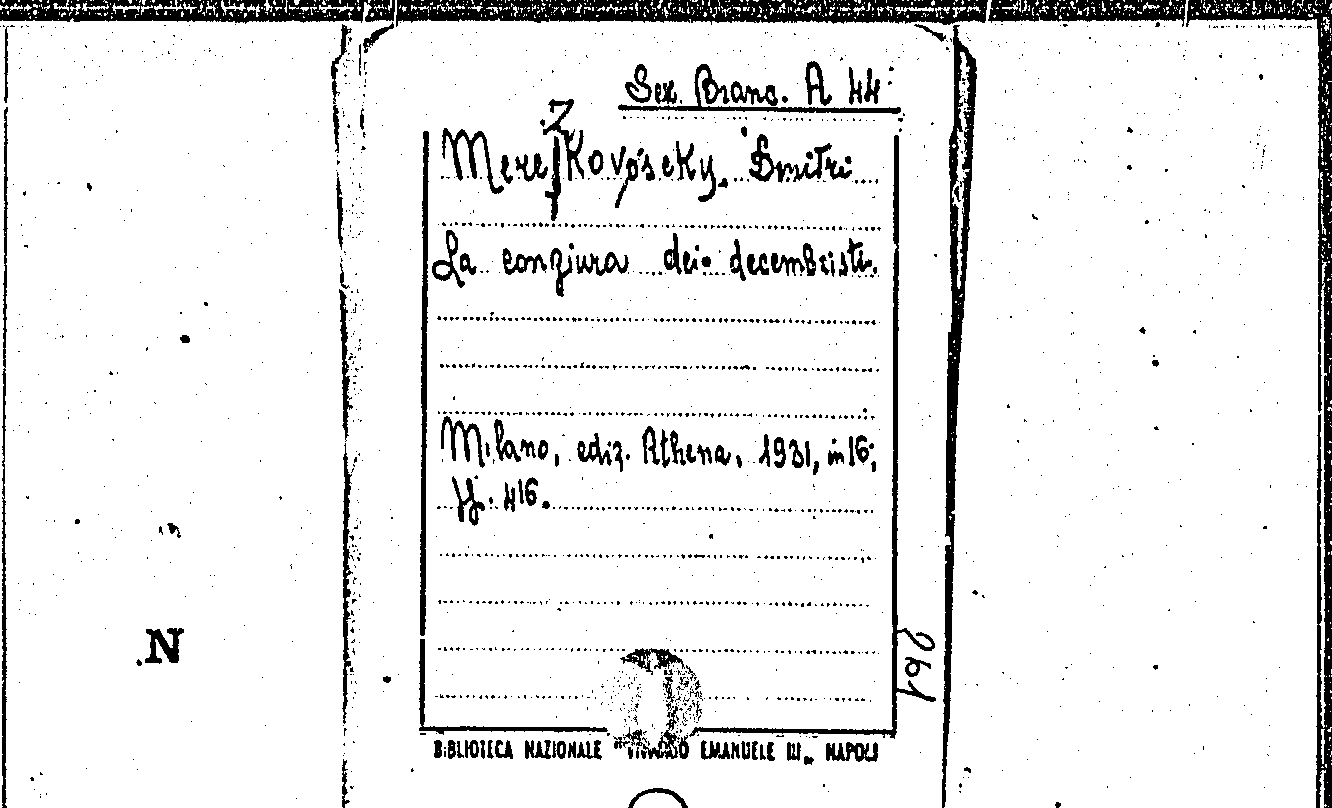 Sez. Branc. A 44
z
Merejkovosoky, Dmitri
La congiura dei decembristi.
Milano, ediz. Athena, 1931, in 16;
pp. 416.
N
BIBLIOTECA NAZIONALE "VITTORIO EMANUELE III„ NAPOLI